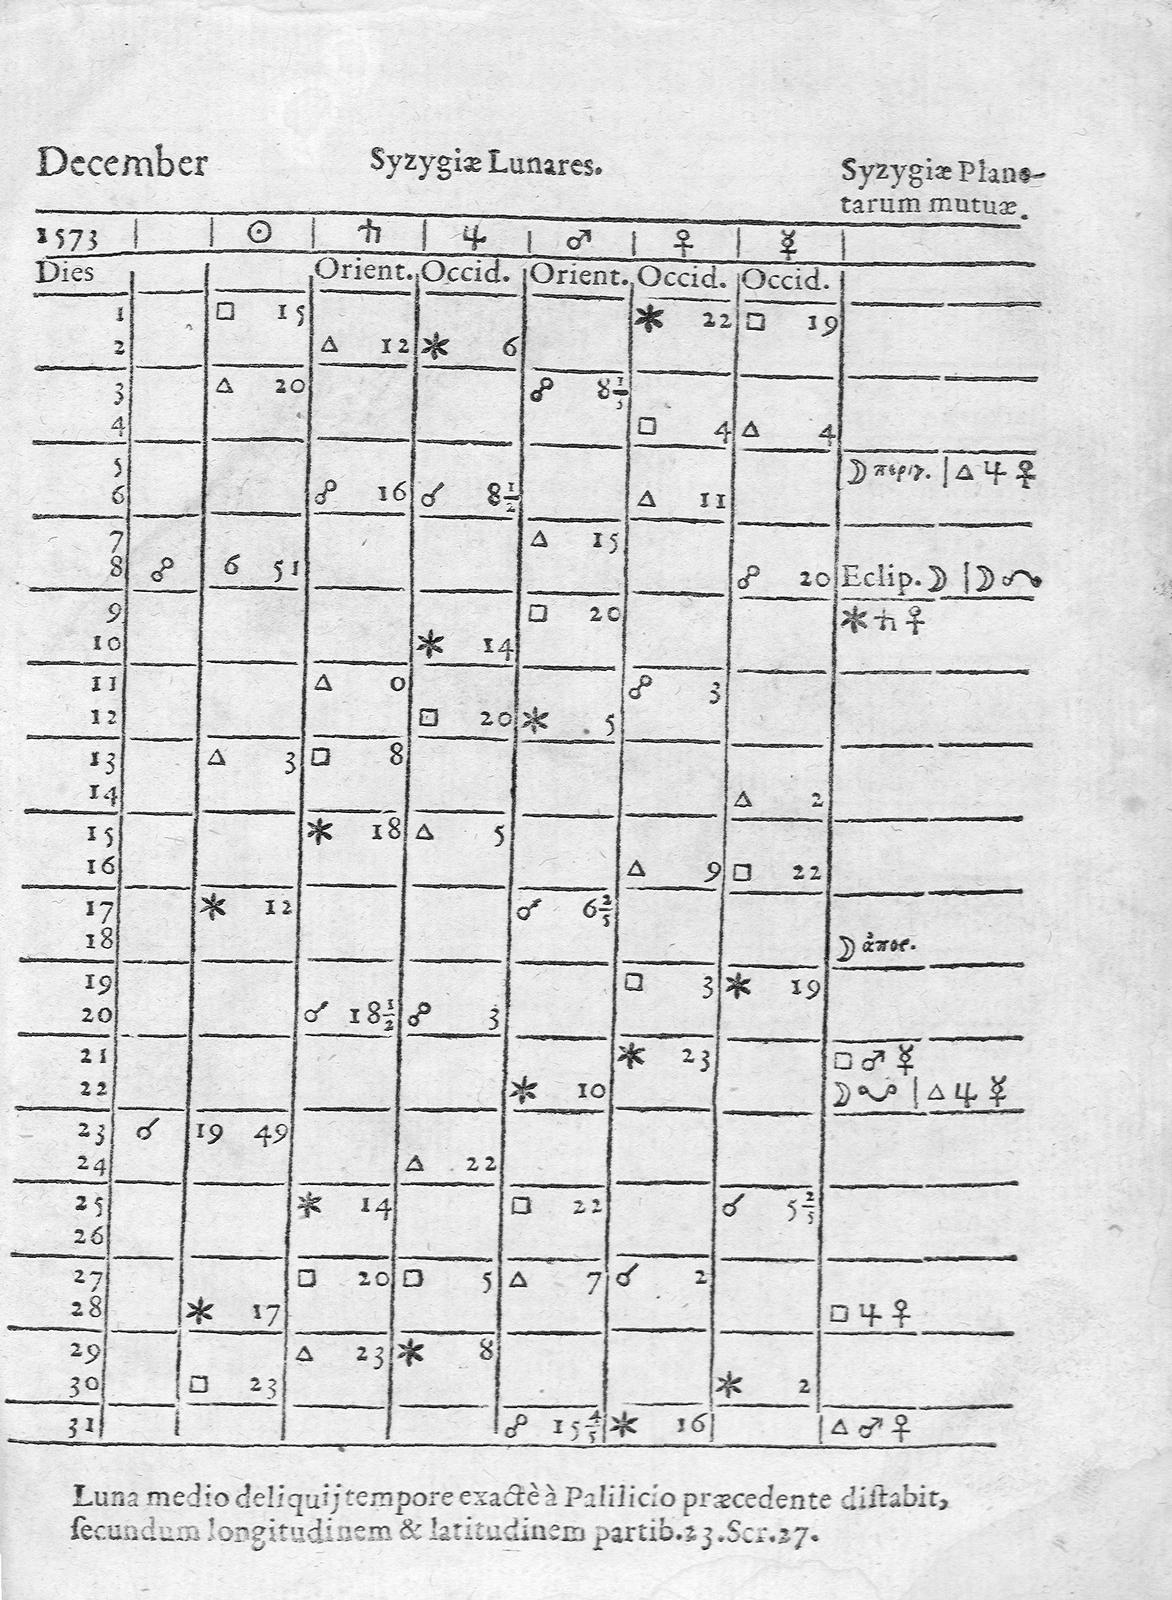 December Syzygiæ Lunares. Syzygiæ Plane-
tarum mutuæ.
1573 | | ☉ | ♄ | ♃ | ♂ | ♀ | ☿ |
Dies Orient. Occid. Orient. Occid. Occid.
1 □ 15 ✶ 22 □ 19
2 △ 12 ✶ 6
3 △ 20 ☍ 8 1/3
4 □ 4 △ 4
5 ☽ περιγ. | △ ♃ ☿
6 ☍ 16 ☌ 8 1/2 △ 11
7 △ 15
8 ☍ 6 51 ☍ 20 Eclip. ☽ | ☽ ☋
9 □ 20 ✶ ♄ ♀
10 ✶ 14
11 △ 0 ☍ 3
12 □ 20 ✶ 5
13 △ 3 □ 8
14 △ 2
15 ✶ 18 △ 5
16 △ 9 □ 22
17 ✶ 12 ☌ 6 2/5
18 ☽ ἀπογ.
19 □ 3 ✶ 19
20 ☌ 18 1/2 ☍ 3
21 ✶ 23 □ ♂ ☿
22 ✶ 10 ☽ ☊ | △ ♃ ☿
23 ☌ 19 49
24 △ 22
25 ✶ 14 □ 22 ☌ 5 2/5
26
27 □ 20 □ 5 △ 7 ☌ 2
28 ✶ 17 □ ♃ ♀
29 △ 23 ✶ 8
30 □ 23 ✶ 2
31 ☍ 15 4/5 ✶ 16 △ ♂ ♀
Luna medio deliquij tempore exactè à Palilicio præcedente diſtabit,
ſecundum longitudinem & latitudinem partib. 23. Scr. 27.